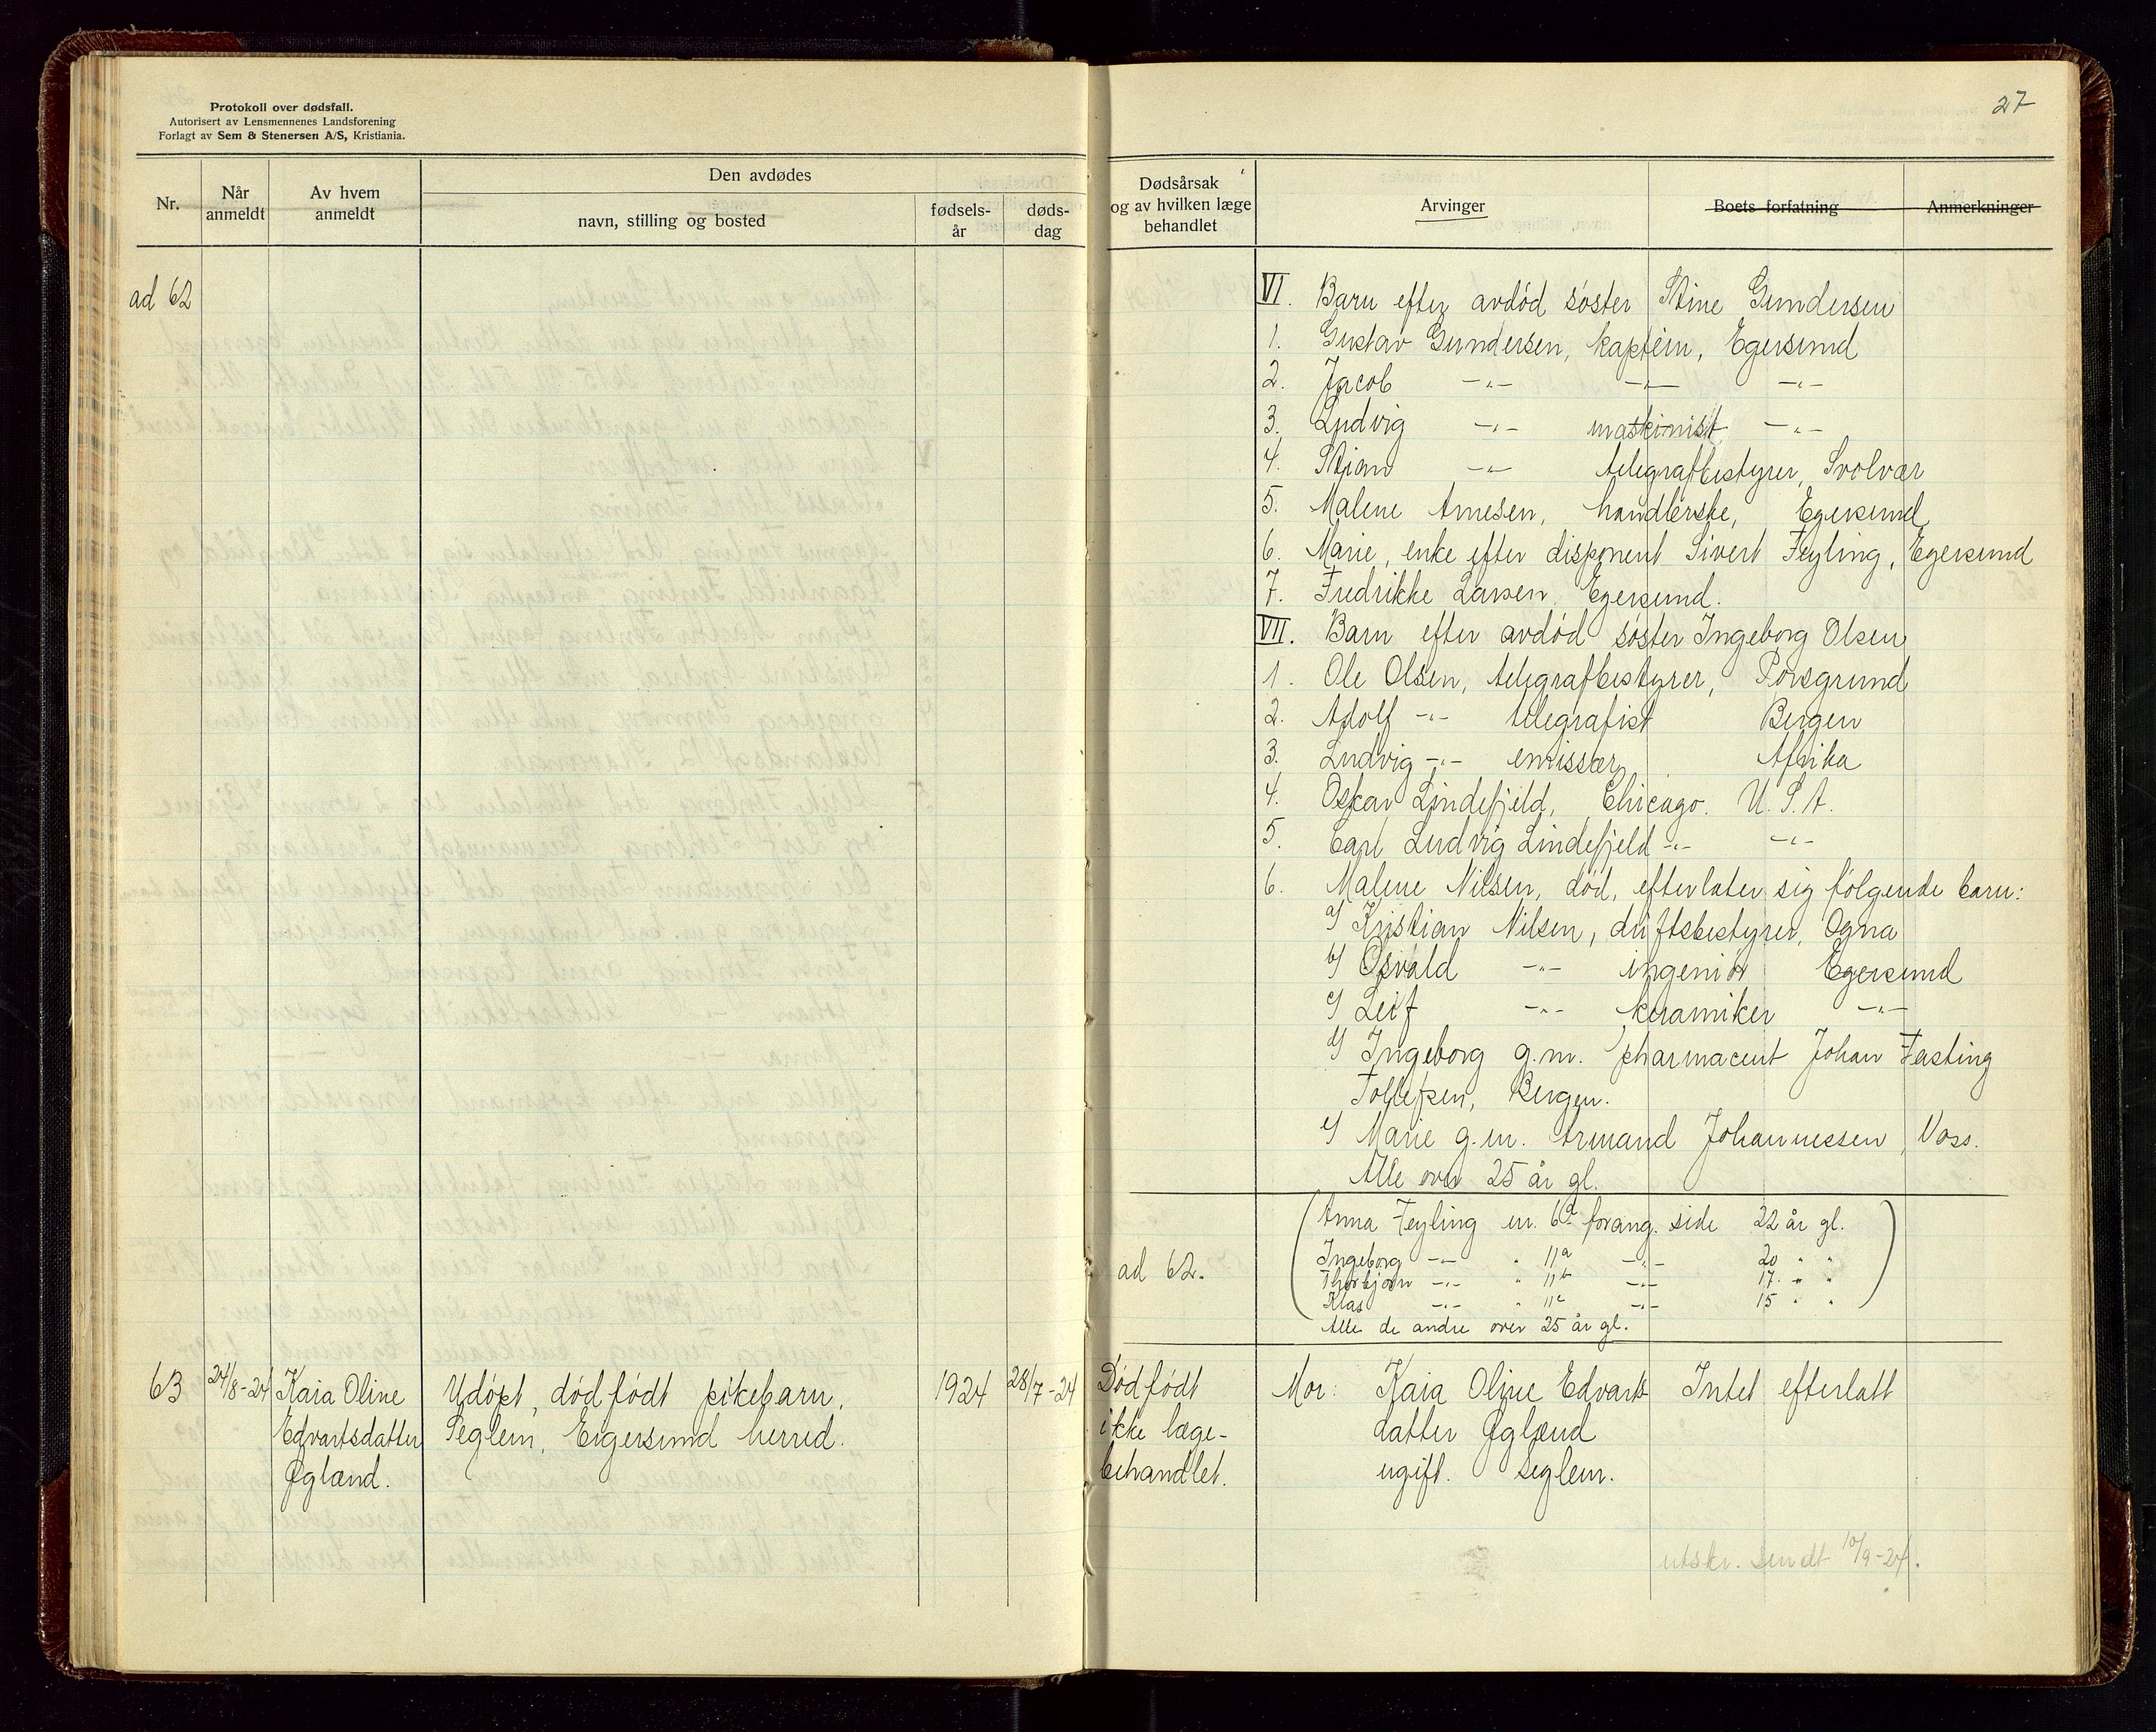 Protokoll over dødsfall.
Autorisert av Lensmennenes Landsforening
Forlagt av Sem & Stenersen A/S, Kristiania.
27
Nr.
Når anmeldt
Av hvem anmeldt
Den avdødes
navn, stilling og bosted
fødsels-år
døds-dag
Dødsårsak og av hvilken læge behandlet
Arvinger
Boets forfatning
Anmerkninger
ad 62
VI. Barn efter avdød søster Stine Gundersen
1. Gustav Gundersen, kaptein, Egersund
2. Jacob -"- -"- -"-
3. Ludvig -"- maskinist -"-
4. Stian -"- telegrafbestyrer, Svolvær
5. Malene Arnesen, handlerske, Egersund
6. Marie, enke efter disponent Sivert Feyling, Egersund
7. Fredrikke Larsen, Egersund.
VII. Barn efter avdød søster Ingeborg Olsen
1. Ole Olsen, telegrafbestyrer, Porsgrund
2. Adolf -"- telegrafist Bergen
3. Ludvig -"- emissær, Afrika
4. Oskar Lindefjeld, Chicago. U.S.A.
5. Carl Ludvig Lindefjeld -"- -"-
6. Malene Nilsen, død, efterlater sig følgende barn:
a/ Kristian Nilsen, driftsbestyrer, Ogna
b/ Osvald -"- ingeniør Egersund
c/ Leif -"- keramiker -"-
d/ Ingeborg g.m. pharmaceut Johan Fasting
Tollefsen, Bergen.
e/ Marie g.m. Armand Johannessen, Voss.
Alle over 25 år gl.
ad 62.
(Anna Feyling nr. 6d forang. side 22 år gl.
Ingeborg -"- " 11a -"- 20 " "
Thorbjørn -"- " 11b -"- 17 " "
Klas -"- " 11c -"- 15 " ")
Alle de andre over 25 år gl.
63 24/8-24 Kaia Oline Udøpt, dødfødt pikebarn, 1924 28/7-24 Dødfødt Mor: Kaia Oline Edvarts Intet efterlatt
Edvartsdatter Seglem, Eigersund herred. ikke læge- datter Øglænd
Øglænd. behandlet. ugift. Seglem.
utskr. sendt 10/9-24.